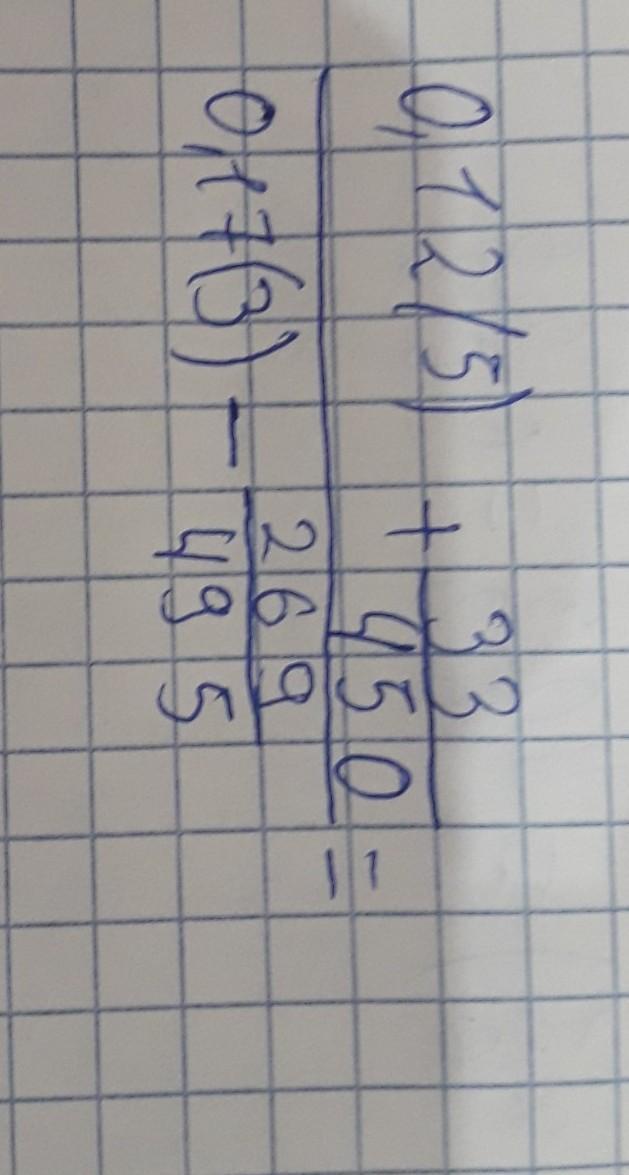 0,12(5) + 33
450 =
0,17(3) - 269
495